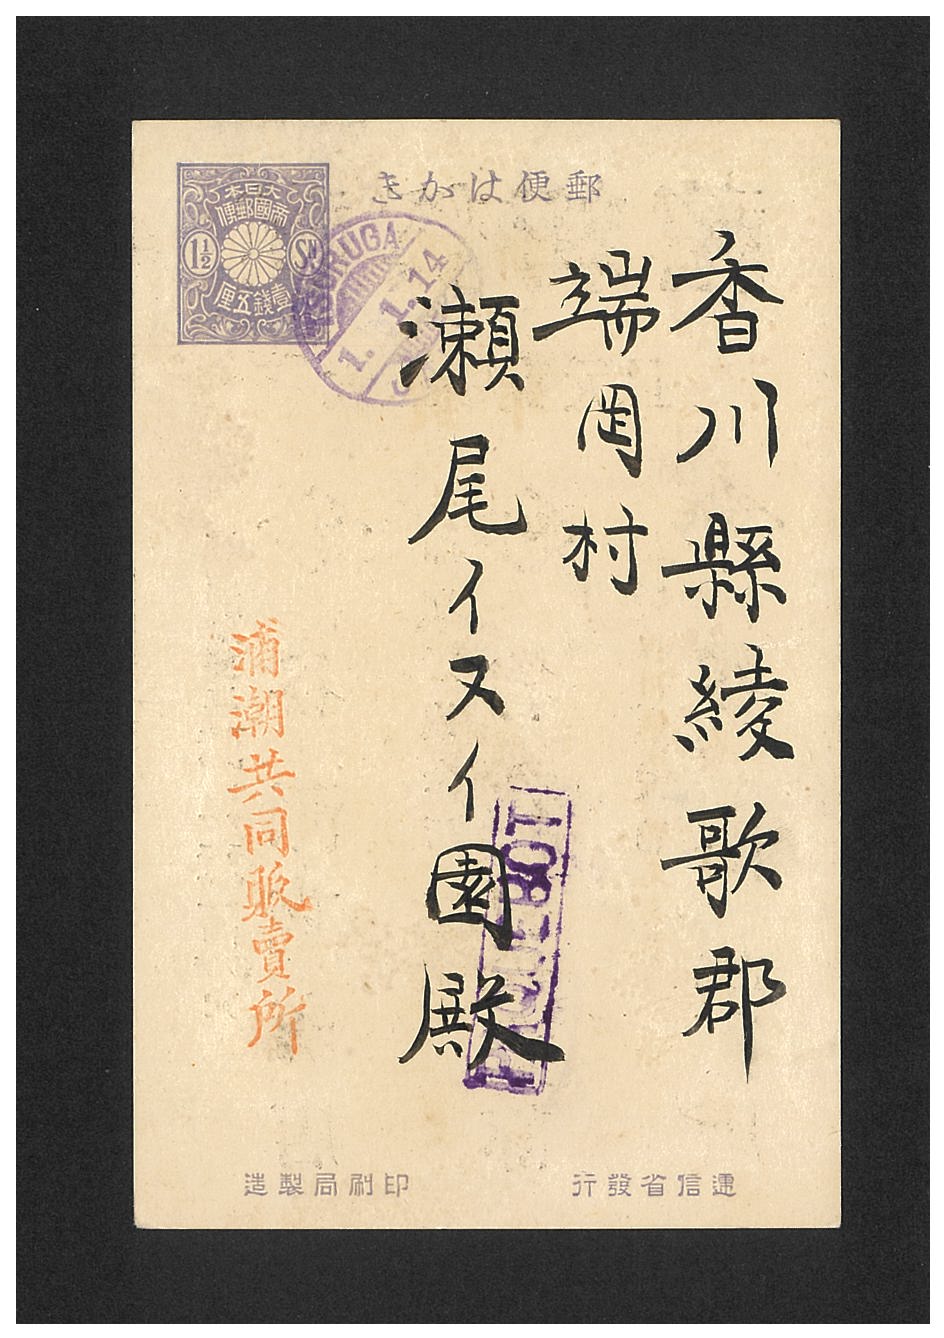 郵便はがき
大日本
帝國郵便
1½ Sn
壹錢五厘
TSURUGA
1. 1. 14
香川縣綾歌郡
端岡村
瀬尾イヌイ園殿
PAQUEBOT
浦潮共同販賣所
逓信省發行
印刷局製造